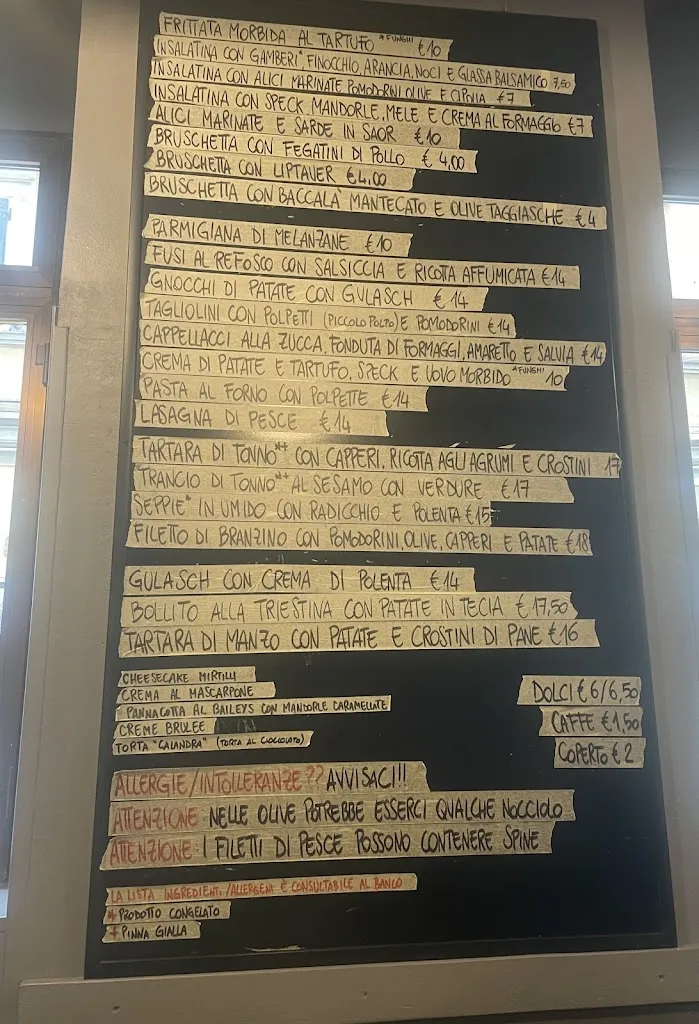 FRITTATA MORBIDA AL TARTUFO *FUNGHI €10
INSALATINA CON GAMBERI*, FINOCCHIO, ARANCIA, NOCI E GLASSA BALSAMICO 7,50
INSALATINA CON ALICI MARINATE POMODORINI OLIVE E CIPOLLA €7
INSALATINA CON SPECK, MANDORLE, MELE E CREMA AL FORMAGGIO €7
ALICI MARINATE E SARDE IN SAOR €10
BRUSCHETTA CON FEGATINI DI POLLO €4,00
BRUSCHETTA CON LIPTAUER €4,00
BRUSCHETTA CON BACCALÀ MANTECATO E OLIVE TAGGIASCHE €4
PARMIGIANA DI MELANZANE €10
FUSI AL REFOSCO CON SALSICCIA E RICOTTA AFFUMICATA €14
GNOCCHI DI PATATE CON GULASCH €14
TAGLIOLINI CON POLPETTI (PICCOLO POLPO) E POMODORINI €14
CAPPELLACCI ALLA ZUCCA, FONDUTA DI FORMAGGI, AMARETTO E SALVIA €14
CREMA DI PATATE E TARTUFO, SPECK E UOVO MORBIDO *FUNGHI 10
PASTA AL FORNO CON POLPETTE €14
LASAGNA DI PESCE €14
TARTARA DI TONNO*+ CON CAPPERI, RICOTTA AGLI AGRUMI E CROSTINI 17
TRANCIO DI TONNO*+ AL SESAMO CON VERDURE €17
SEPPIE* IN UMIDO CON RADICCHIO E POLENTA €15
FILETTO DI BRANZINO CON POMODORINI, OLIVE, CAPPERI E PATATE €18
GULASCH CON CREMA DI POLENTA €14
BOLLITO ALLA TRIESTINA CON PATATE IN TECIA €17,50
TARTARA DI MANZO CON PATATE E CROSTINI DI PANE €16
CHEESECAKE MIRTILLI
CREMA AL MASCARPONE
PANNACOTTA AL BAILEYS CON MANDORLE CARAMELLATE
CREME BRULEE
TORTA "CALANDRA" (TORTA AL CIOCCOLATO)
DOLCI €6/6,50
CAFFE €1,50
COPERTO €2
ALLERGIE/INTOLLERANZE?? AVVISACI!!!
ATTENZIONE: NELLE OLIVE POTREBBE ESSERCI QUALCHE NOCCIOLO
ATTENZIONE: I FILETTI DI PESCE POSSONO CONTENERE SPINE
LA LISTA INGREDIENTI/ALLERGENI È CONSULTABILE AL BANCO
* PRODOTTO CONGELATO
+ PINNA GIALLA